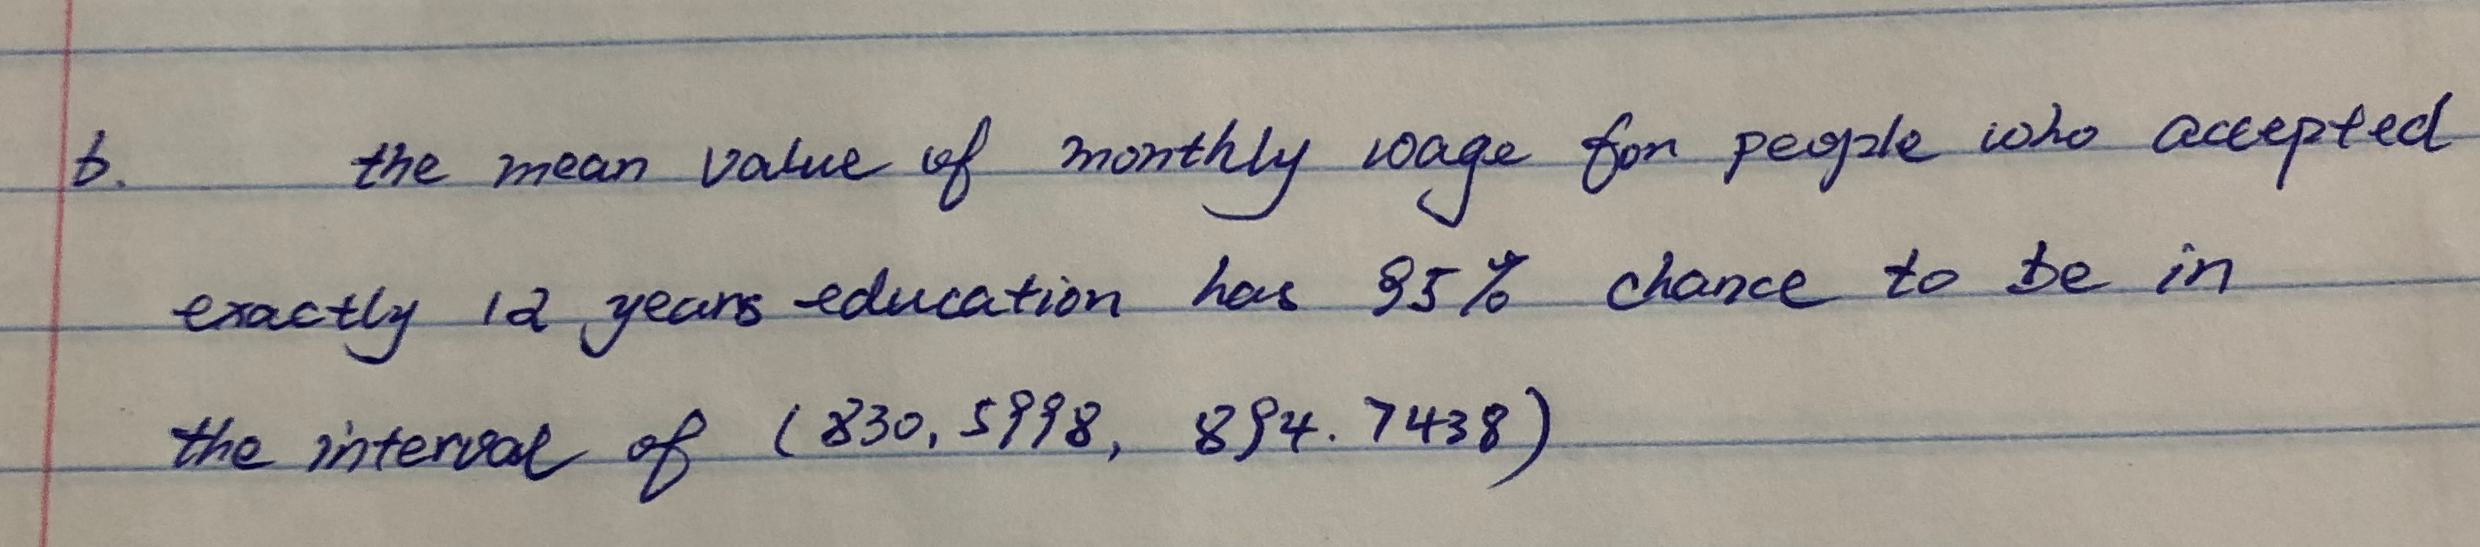 b. the mean value of monthly wage for people who accepted
exactly 12 years education has 95% chance to be in
the interval of (830.5998, 894.7438)